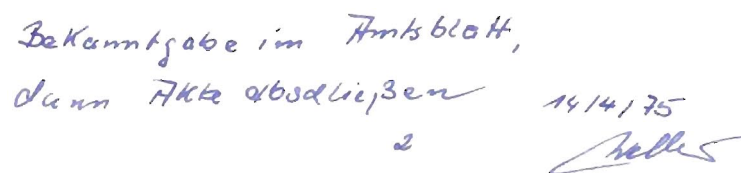 Bekanntgabe im Amtsblatt,
dann Akte abschließen 14/4/75
2